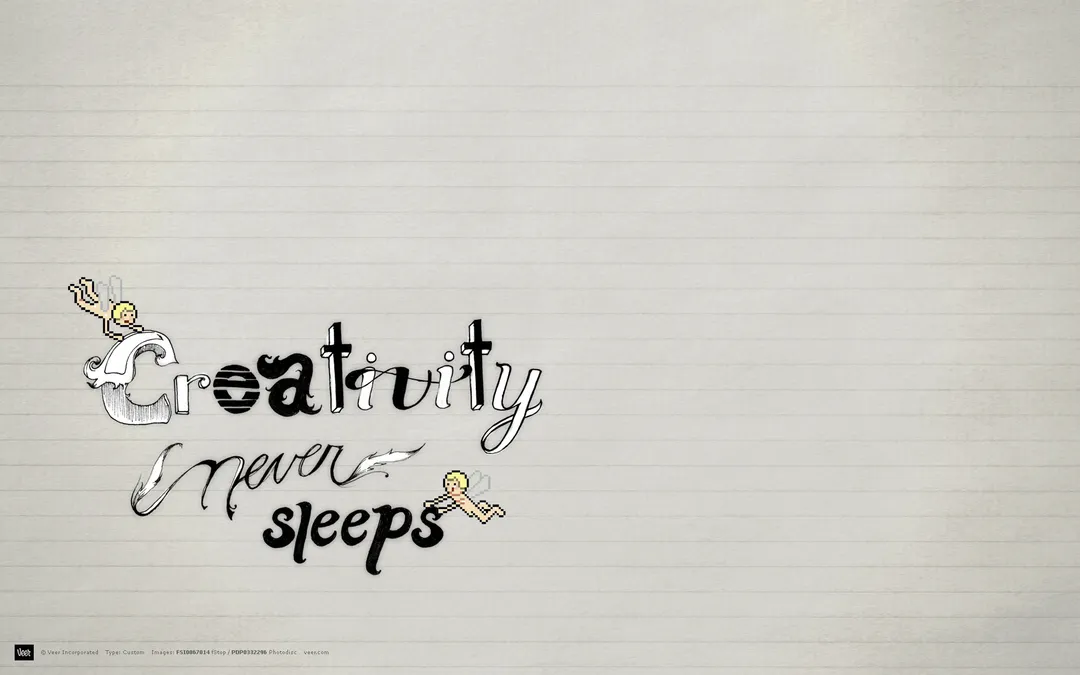 Creativity
never
sleeps
Veer © Veer Incorporated Type: Custom Images: FSI0067814 fStop / PDP0332296 Photodisc veer.com